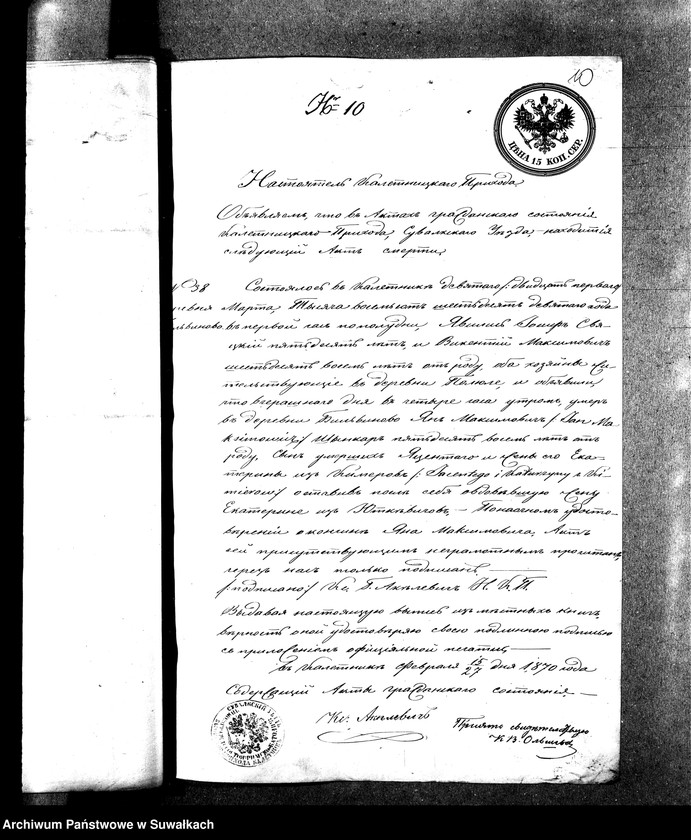 10
№ 10
ЦѢНА 15 КОП. СЕР.
Настоятель Калетницкаго Прихода
Объявляемъ, что въ Актахъ гражданскаго состоянія
Калетницкаго Прихода, Сувалкскаго Уѣзда, находится
слѣдующій Актъ смерти,
№ 38
Состоялось въ Калетникѣ девятаго /: двадцать перваго
Марта, Тысяча восемьсотъ шестьдесятъ девятаго года
въ первой часъ пополудни, Явились Іосифъ Свя-
цкій пятьдесятъ лѣтъ, и Викентій Максимовичъ
шестьдесятъ восемь лѣтъ отъ роду, оба хозяйны жи-
тельствующіе въ деревни и объявили,
что вчерашняго дня въ четыре часа утромъ, умеръ
въ деревни Бильвиново Янъ Максимовичъ /: Jan Ma-
ksimowicz :/ Шинкаръ пятьдесятъ восемь лѣтъ отъ
роду, Сынъ умершихъ Яцентого и жены его Ека-
терины изъ /: Jacentego i Katarzyny z
:/ оставивъ послѣ себя овдовѣвшую жену
Екатерину изъ Юткевичовъ, — По настоящемъ удосто-
вѣреніи о кончинѣ Яна Максимовича, Актъ
сей присутствующимъ неграмотнымъ прочитанъ,
черезъ насъ только подписанъ —
/: подписано :/ Кс. Б. Акелевичъ Н. К. П.
Выдавая настоящую выпись изъ мѣстныхъ книгъ,
вѣрность оной удостовѣряю своею подлинною подписью
съ приложеніемъ офиціяльной печати, —
въ Калетникѣ Февраля 15/27 дня 1870 года
Содержащій Акты гражданскаго состоянія —
Кс. Акелевичъ
Archiwum Państwowe w Suwałkach